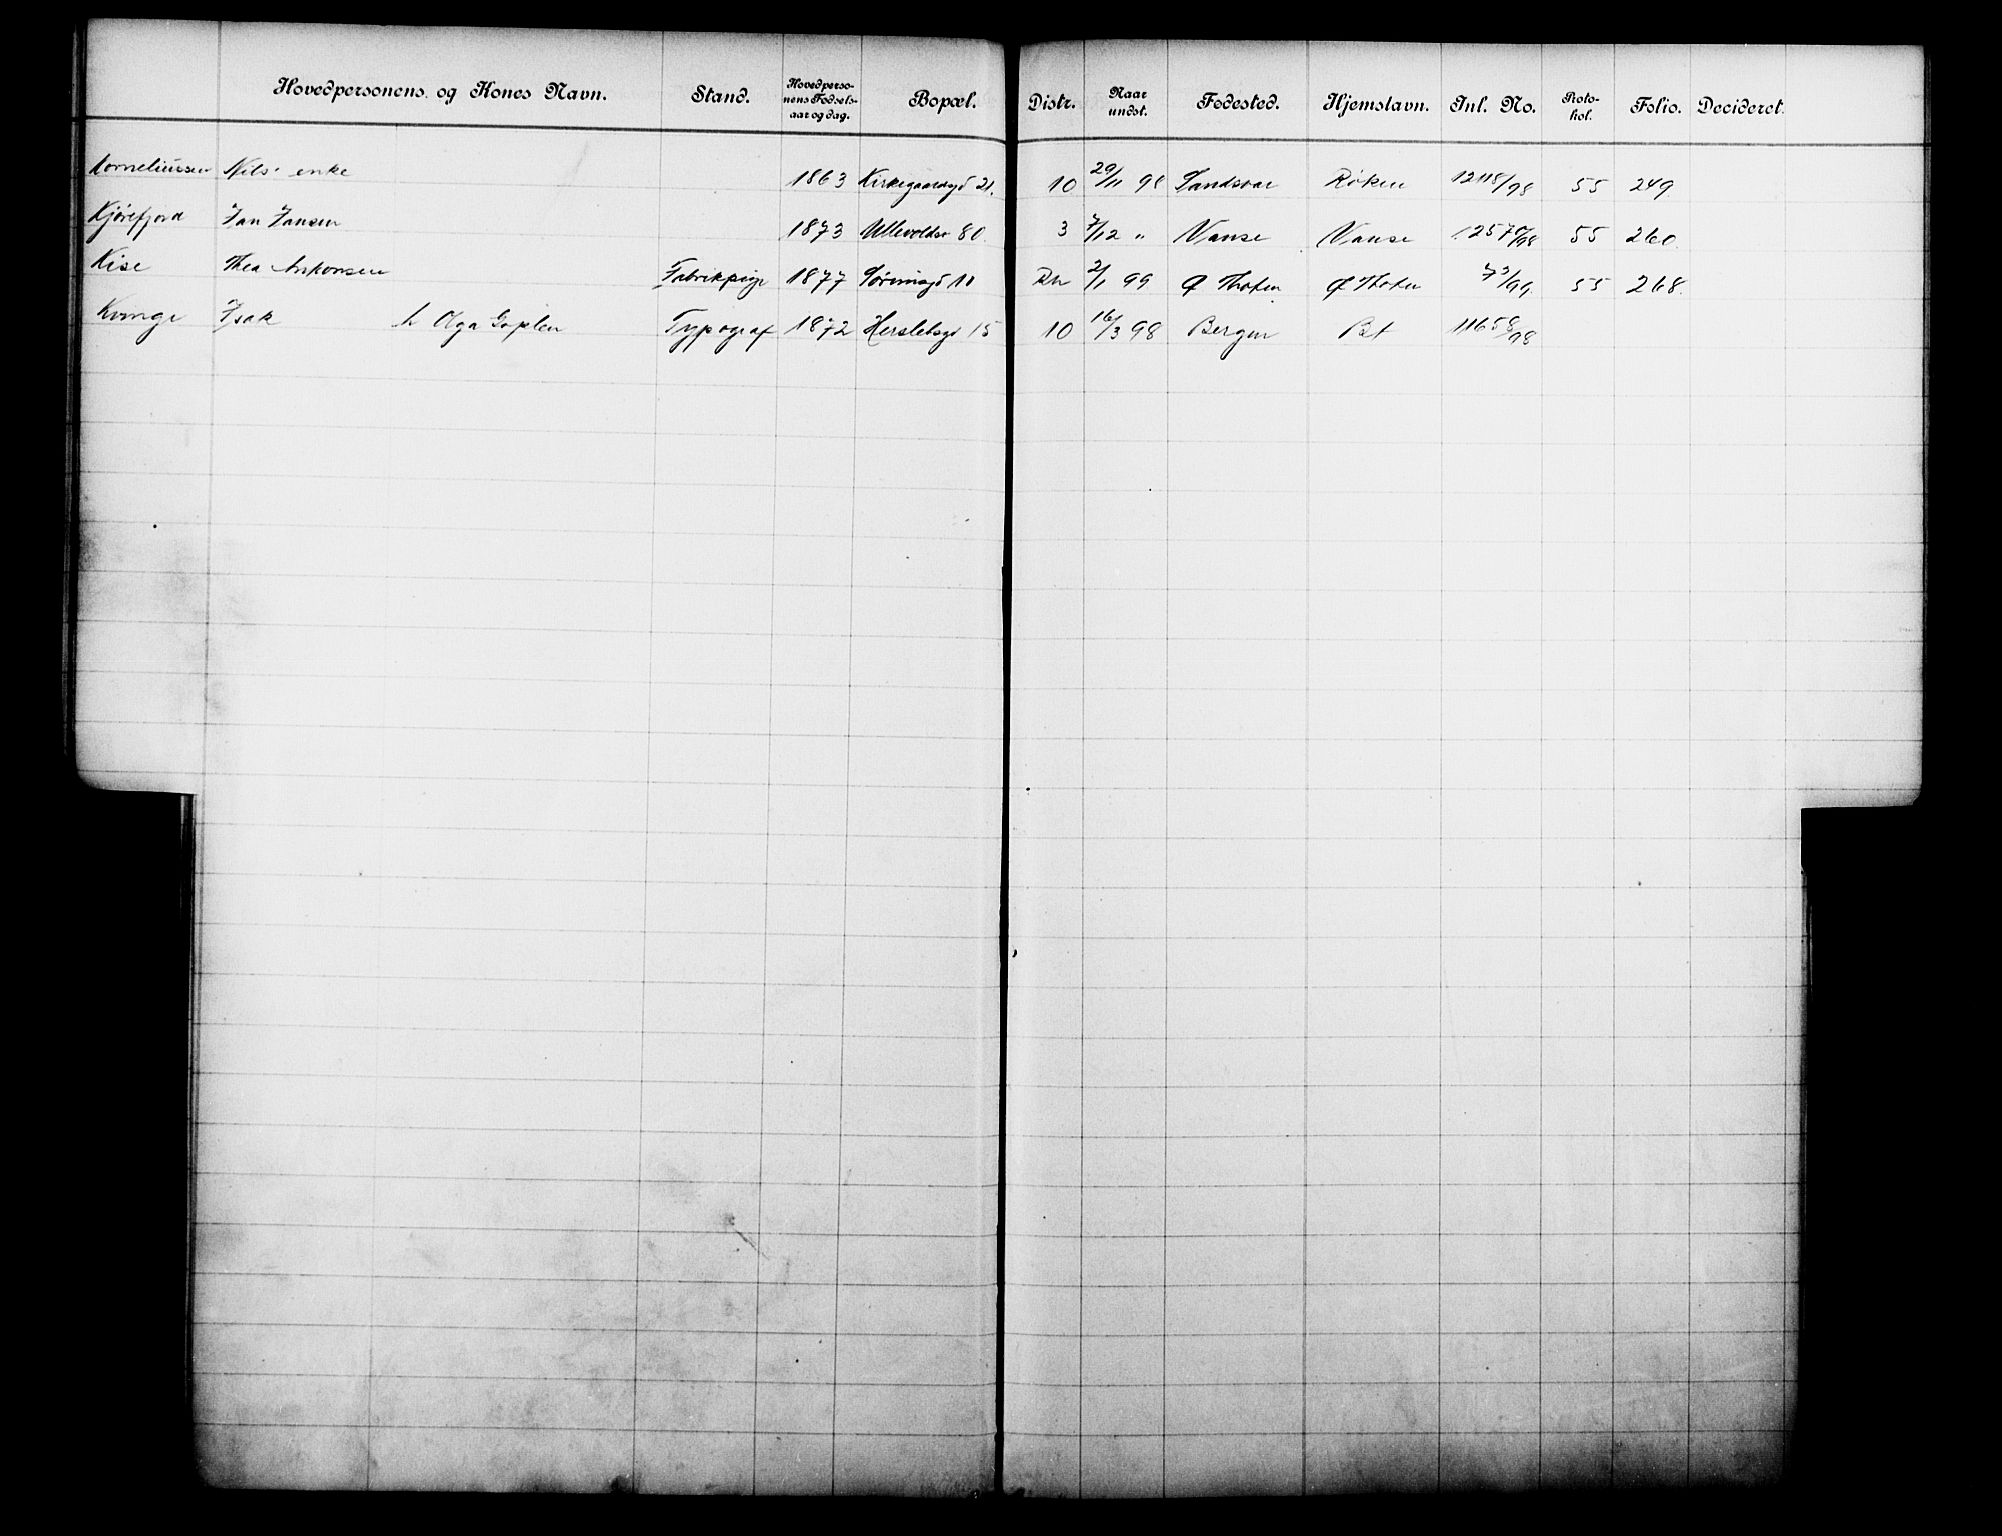 Hovedpersonens og Kones Navn. Stand. Hovedperso-nens Fødsels-aar og dag. Bopæl. Distr. Naar undst. Fødested. Hjemstavn. Inl. No. Proto-kol. Folio. Decideret.
Korneliussen Nils' enke 1863 Kirkegaardsgd 21. 10 29/11 98 Sandsvær Røken 12118/98 55 249.
Kjørefjord Jan Jansen 1873 Ullevoldsv 80. 3 7/12 " Vanse Vanse 12570/98 55 260.
Kise Thea Fabrikpige 1877 10 2/1 99 Ø Thoten Ø Thoten 73/99. 55 268.
Kvinge Isak h Olga Typograf 1872 Herslebsgd 15 10 16/3 98 Bergen Bst 11658/98